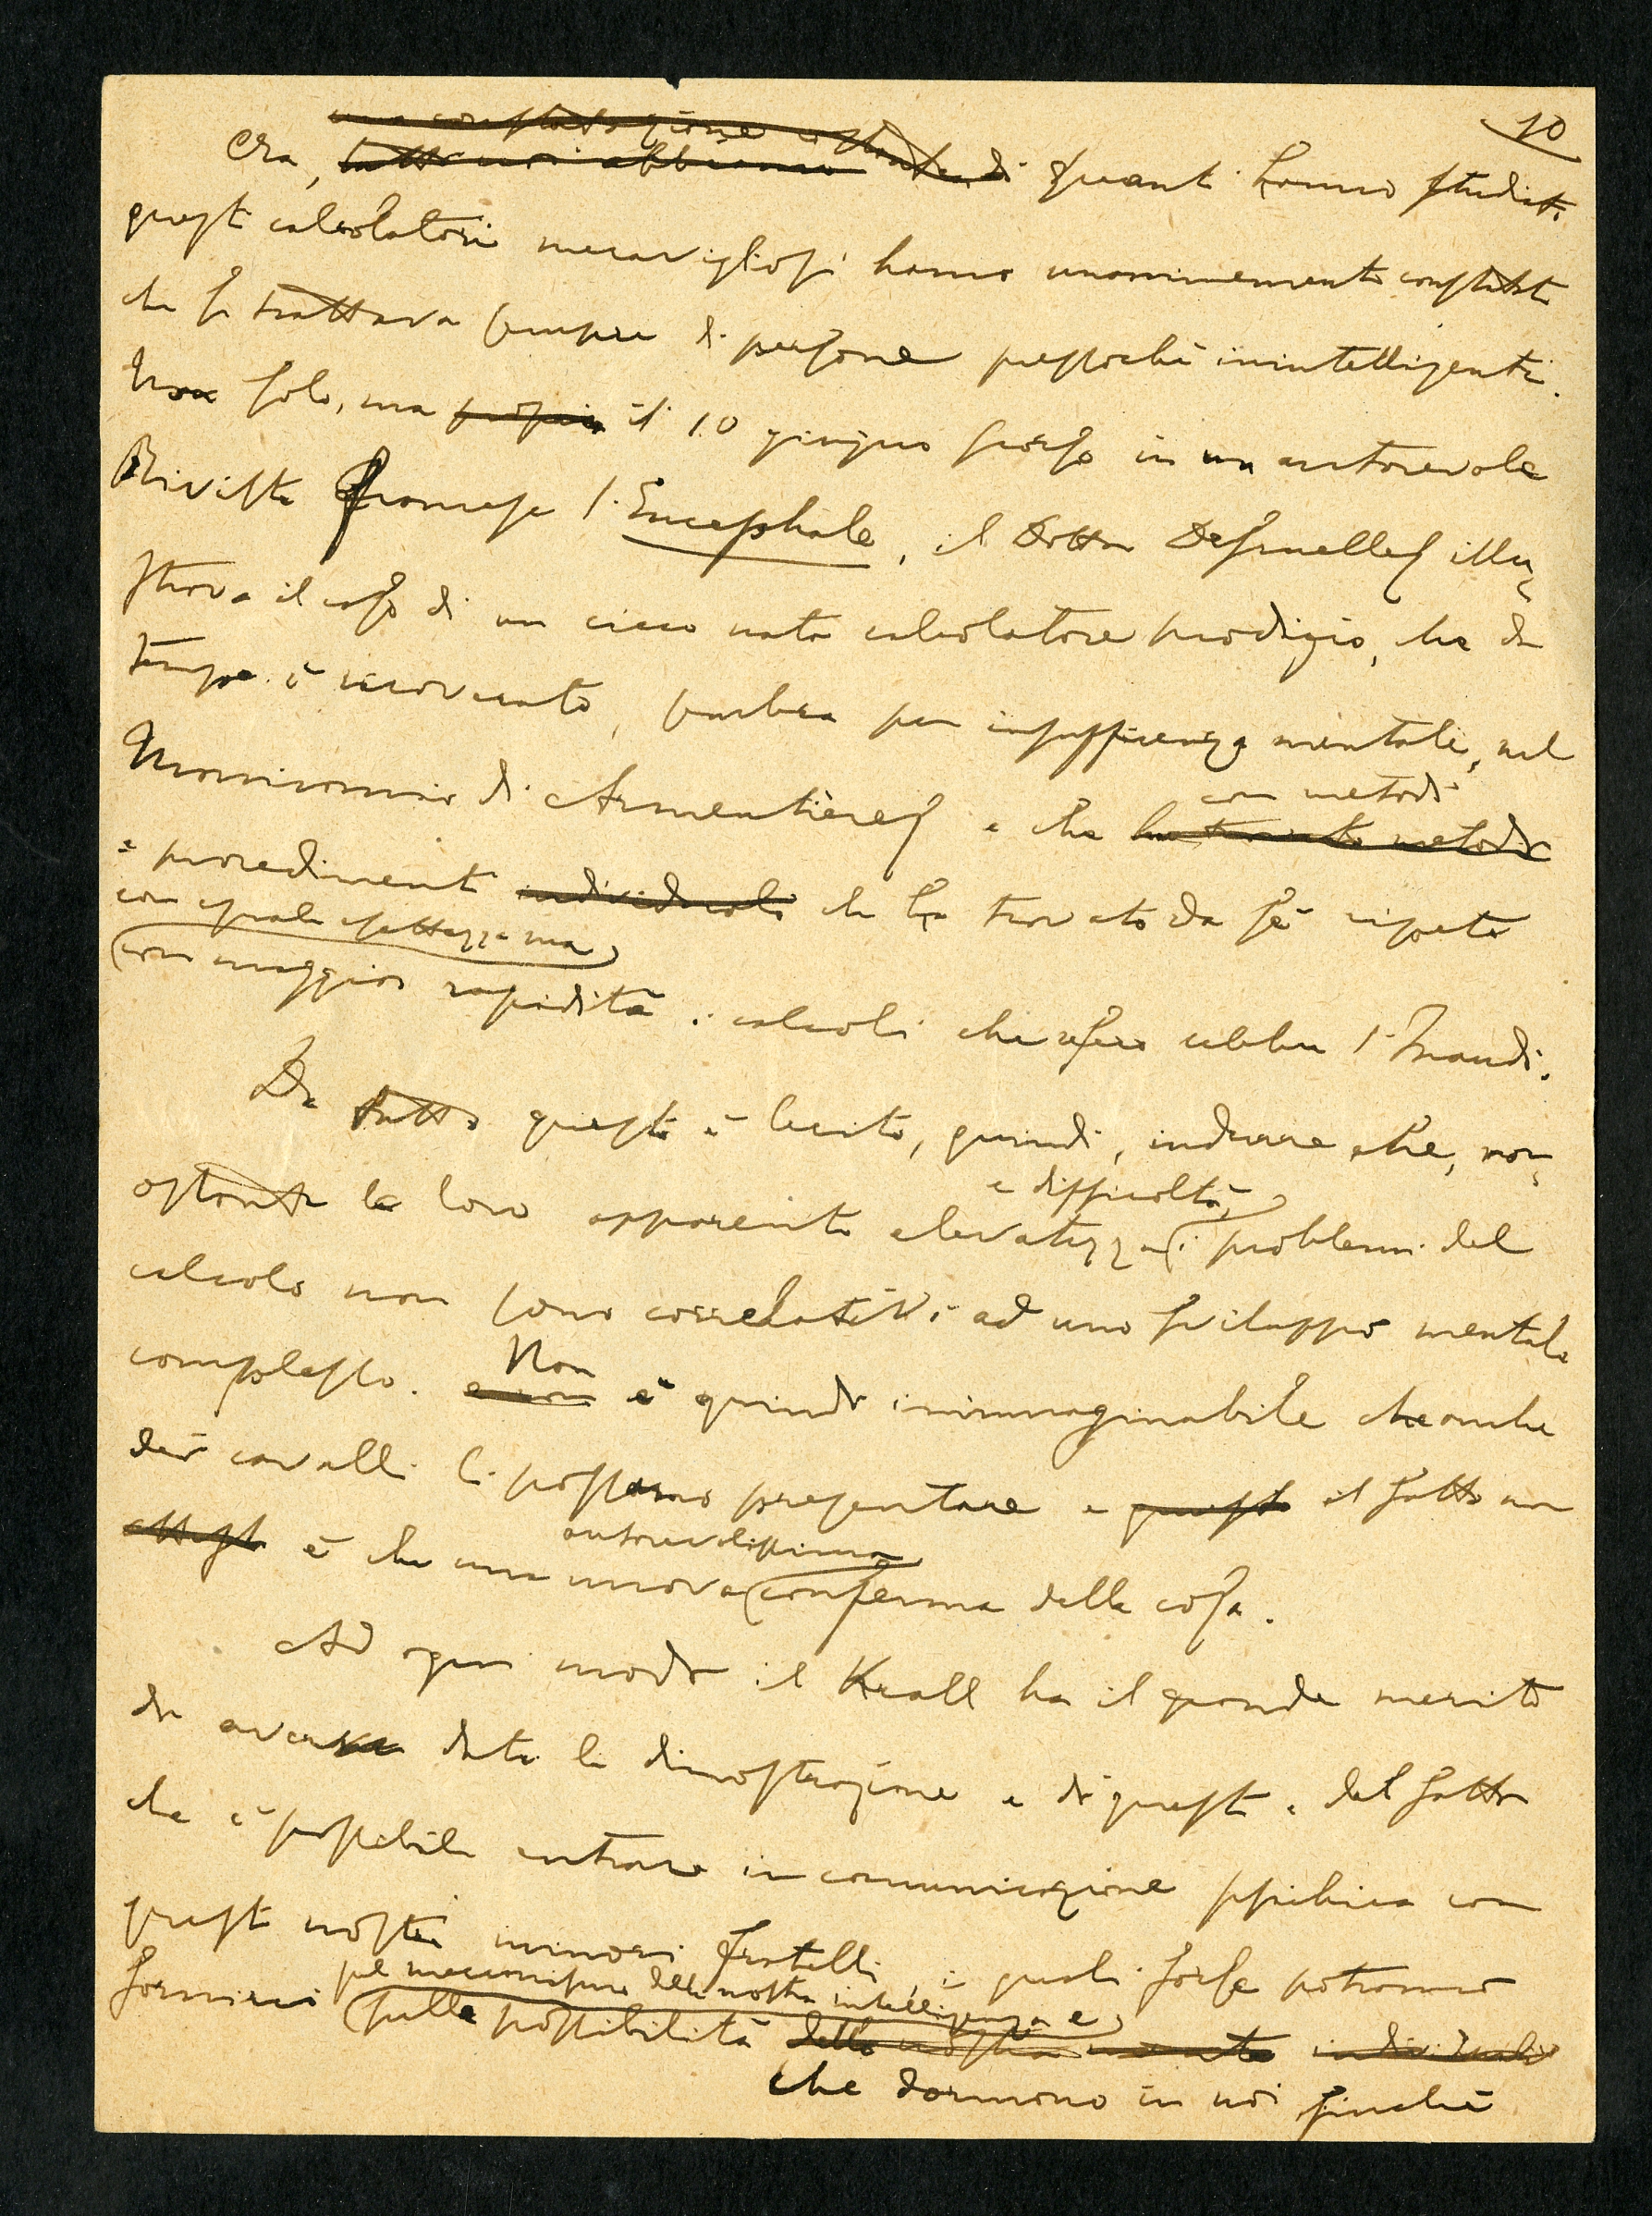 10
una constatazione costante di
Ora, tutti noi abbiamo quanti hanno studiati
questi calcolatori meravigliosi hanno unanimemente constatato
che si trattava sempre di persone pressochè inintelligenti.
Non solo, ma proprio il 10 giugno scorso in un autorevole
Rivista francese l'Encephale, il Dottor Desruelles illu-
strava il caso di un cieco nato calcolatore prodigio, che da
tempo è ricoverato, sembra per insufficienza mentale, nel
Manicomio di Armentières e che ha trovato metodi
con metodi
e procedimenti individuali che ha trovato da sè ripete
con eguale esattezza ma
con maggior rapidità i calcoli che rese celebre l'Inaudi.
Da tutto questo è lecito, quindi, indurre che, non-
ostante la loro apparente elevatezza i problemi del
e difficoltà,
calcolo non sono correlativi ad uno sviluppo mentale
complesso. e non è quindi inimmaginabile che anche
Non
dei cavalli li possano presentare e questo il fatto non
è che una nuova conferma della cosa.
autorevolissima
Ad ogni modo il Krall ha il grande merito
di avere data la dimostrazione e di questo e del fatto
che è possibile entrare in comunicazione psichica con
questi nostri minori fratelli, i quali forse potranno
fornirci sulle possibilità della nostra mente individuali
sul meccanismo della nostra intelligenza e
che dormono in noi finchè